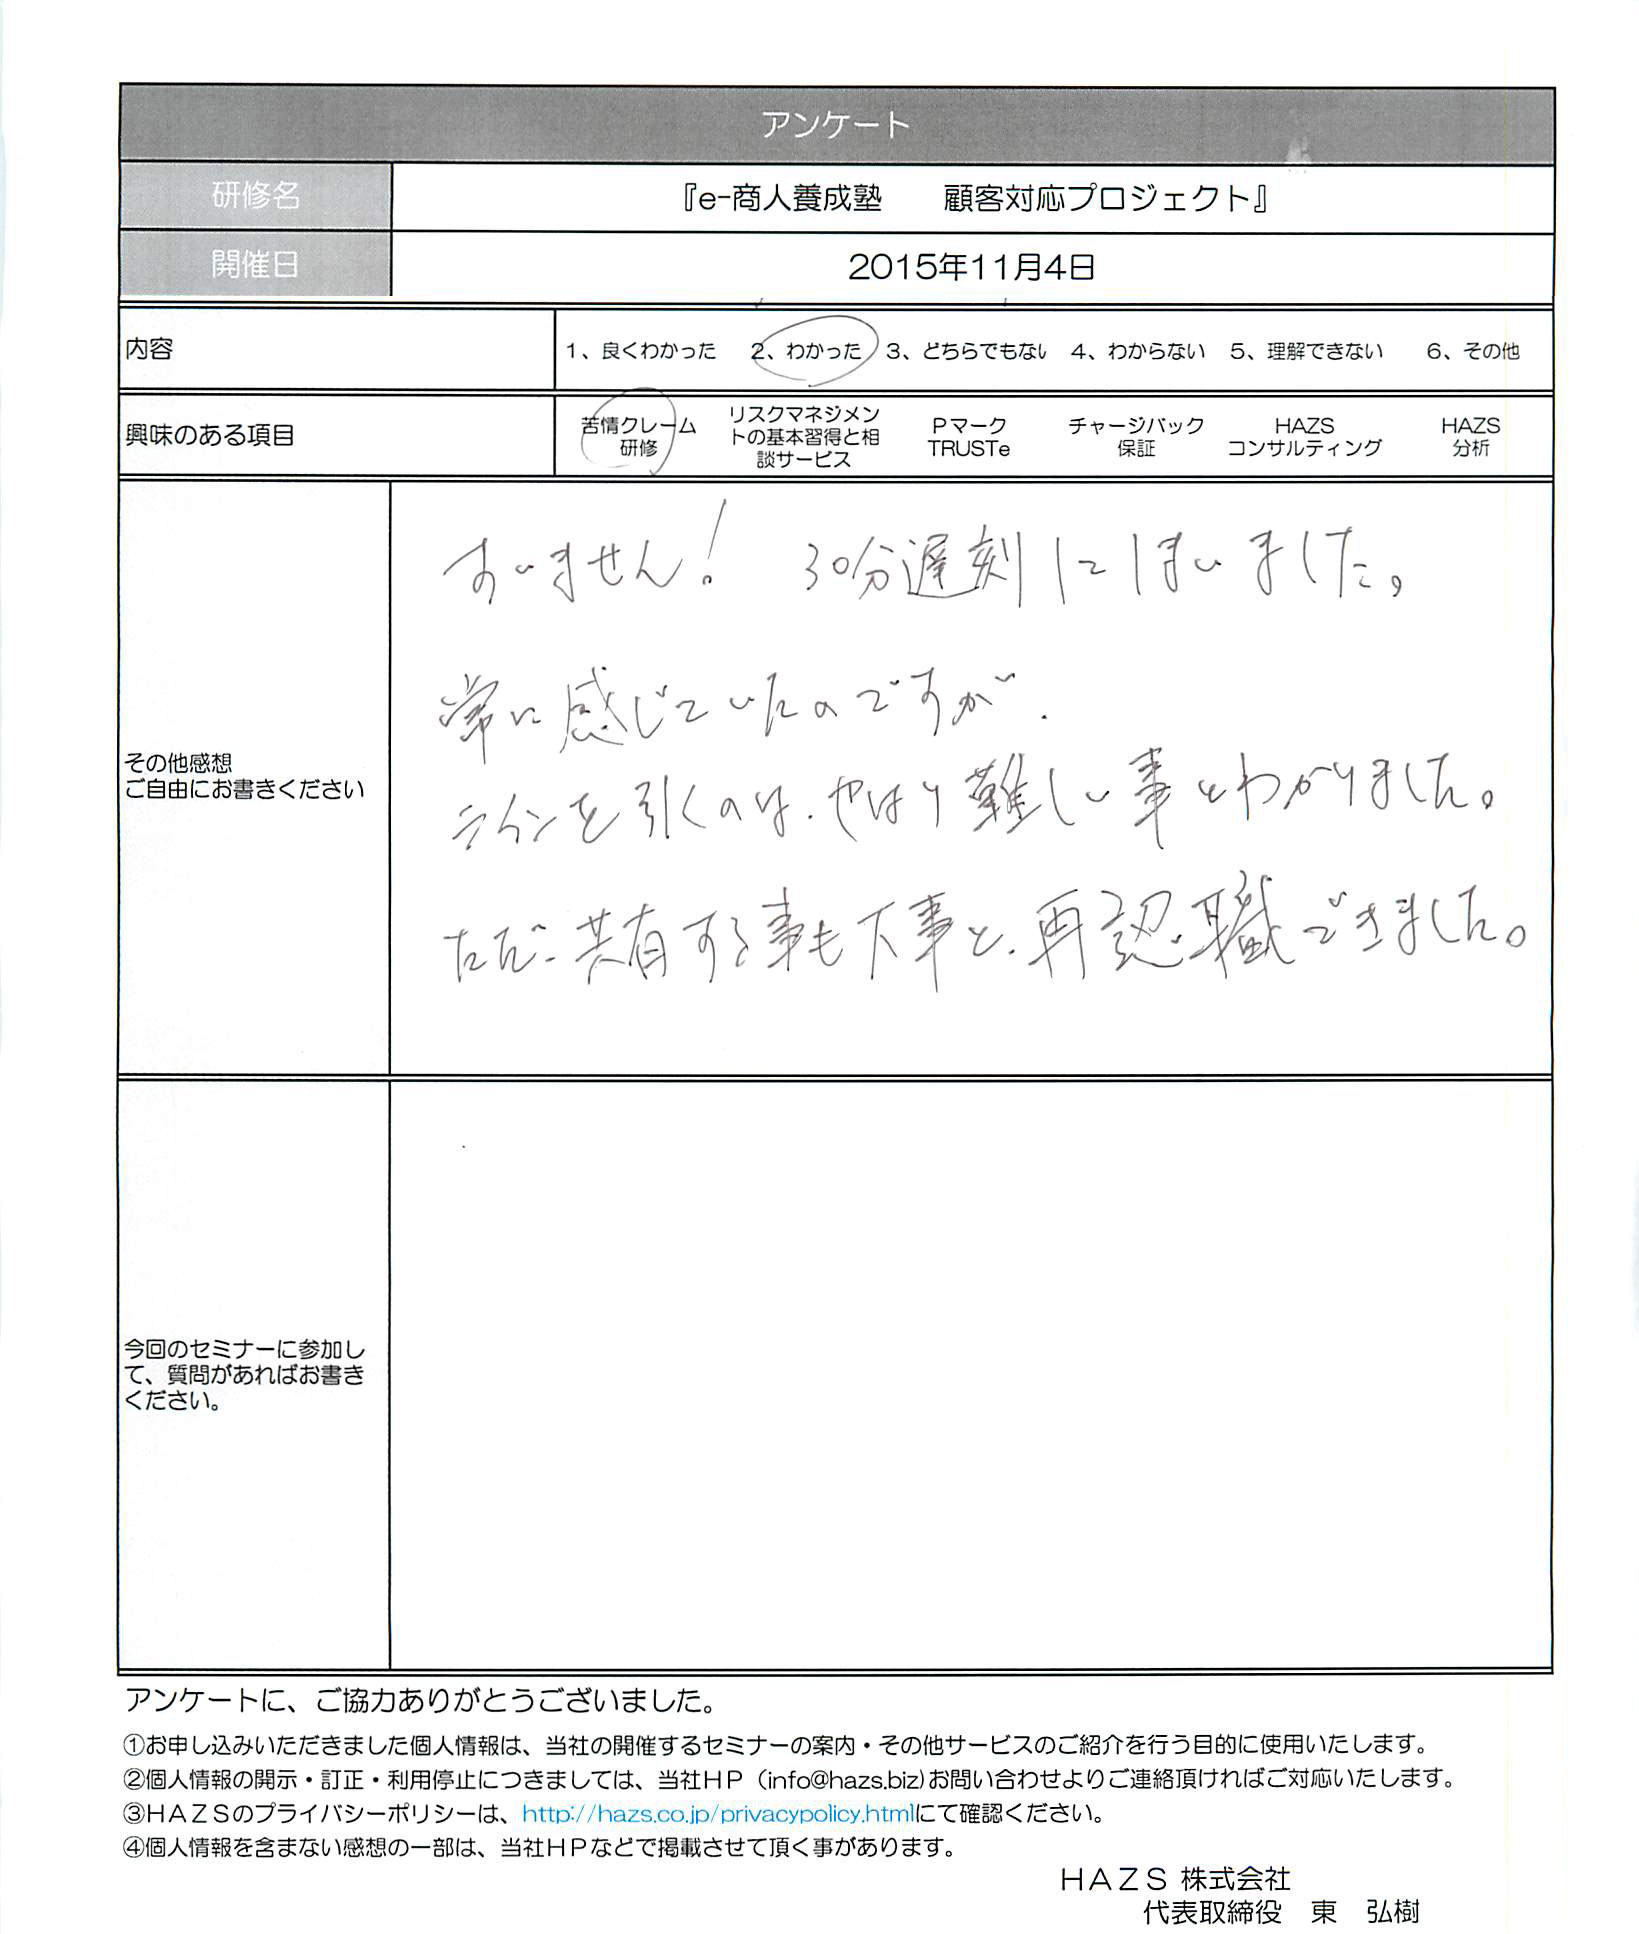 アンケート
研修名
『e-商人養成塾　　顧客対応プロジェクト』
開催日
2015年11月4日
内容
1、良くわかった　2、わかった　3、どちらでもない　4、わからない　5、理解できない　6、その他
興味のある項目
苦情クレーム
研修
リスクマネジメン
トの基本習得と相
談サービス
Pマーク
TRUSTe
チャージバック
保証
HAZS
コンサルティング
HAZS
分析
その他感想
ご自由にお書きください
すいません！　30分遅刻してしまいました。
常に感じていたのですが、
ラインを引くのは、やはり難しい事とわかりました。
ただ、共有する事も大事と、再認職できました。
今回のセミナーに参加し
て、質問があればお書き
ください。
アンケートに、ご協力ありがとうございました。
①お申し込みいただきました個人情報は、当社の開催するセミナーの案内・その他サービスのご紹介を行う目的に使用いたします。
②個人情報の開示・訂正・利用停止につきましては、当社ＨＰ（info@hazs.biz)お問い合わせよりご連絡頂ければご対応いたします。
③ＨＡＺＳのプライバシーポリシーは、http://hazs.co.jp/privacypolicy.htmlにて確認ください。
④個人情報を含まない感想の一部は、当社ＨＰなどで掲載させて頂く事があります。
ＨＡＺＳ 株式会社
代表取締役　東　弘樹